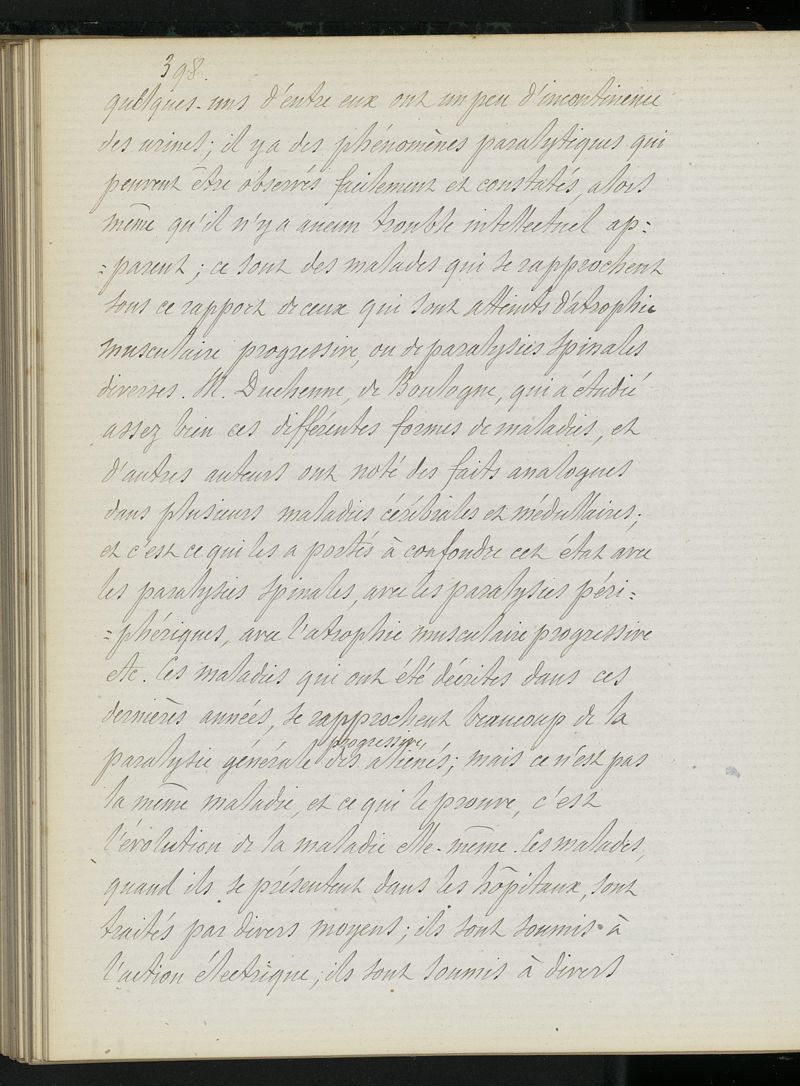 398.
quelques-uns d'entre eux ont un peu d'incontinence
des urines; il y a des phénomènes paralytiques qui
peuvent être observés facilement et constatés, alors
même qu'il n'y a aucun trouble intellectuel ap=
=parent; ce sont des malades qui se rapprochent
sous ce rapport de ceux qui sont atteints d'atrophie
musculaire progressive, ou de paralysies spinales
diverses. M. Duchenne, de Boulogne, qui a étudié
assez bien ces différentes formes de maladies, et
d'autres auteurs ont noté des faits analogues
dans plusieurs maladies cérébrales et médullaires;
et c'est ce qui les a portés à confondre cet état avec
les paralysies spinales, avec les paralysies péri=
=phériques, avec l'atrophie musculaire progressive
etc. Ces maladies qui ont été décrites dans ces
dernières années, se rapprochent beaucoup de la
progressive,
paralysie générale des aliénés; mais ce n'est pas
la même maladie, et ce qui le prouve, c'est
l'évolution de la maladie elle-même. Ces malades,
quand ils se présentent dans les hôpitaux, sont
traités par divers moyens; ils sont soumis à
l'action électrique, ils sont soumis à divers